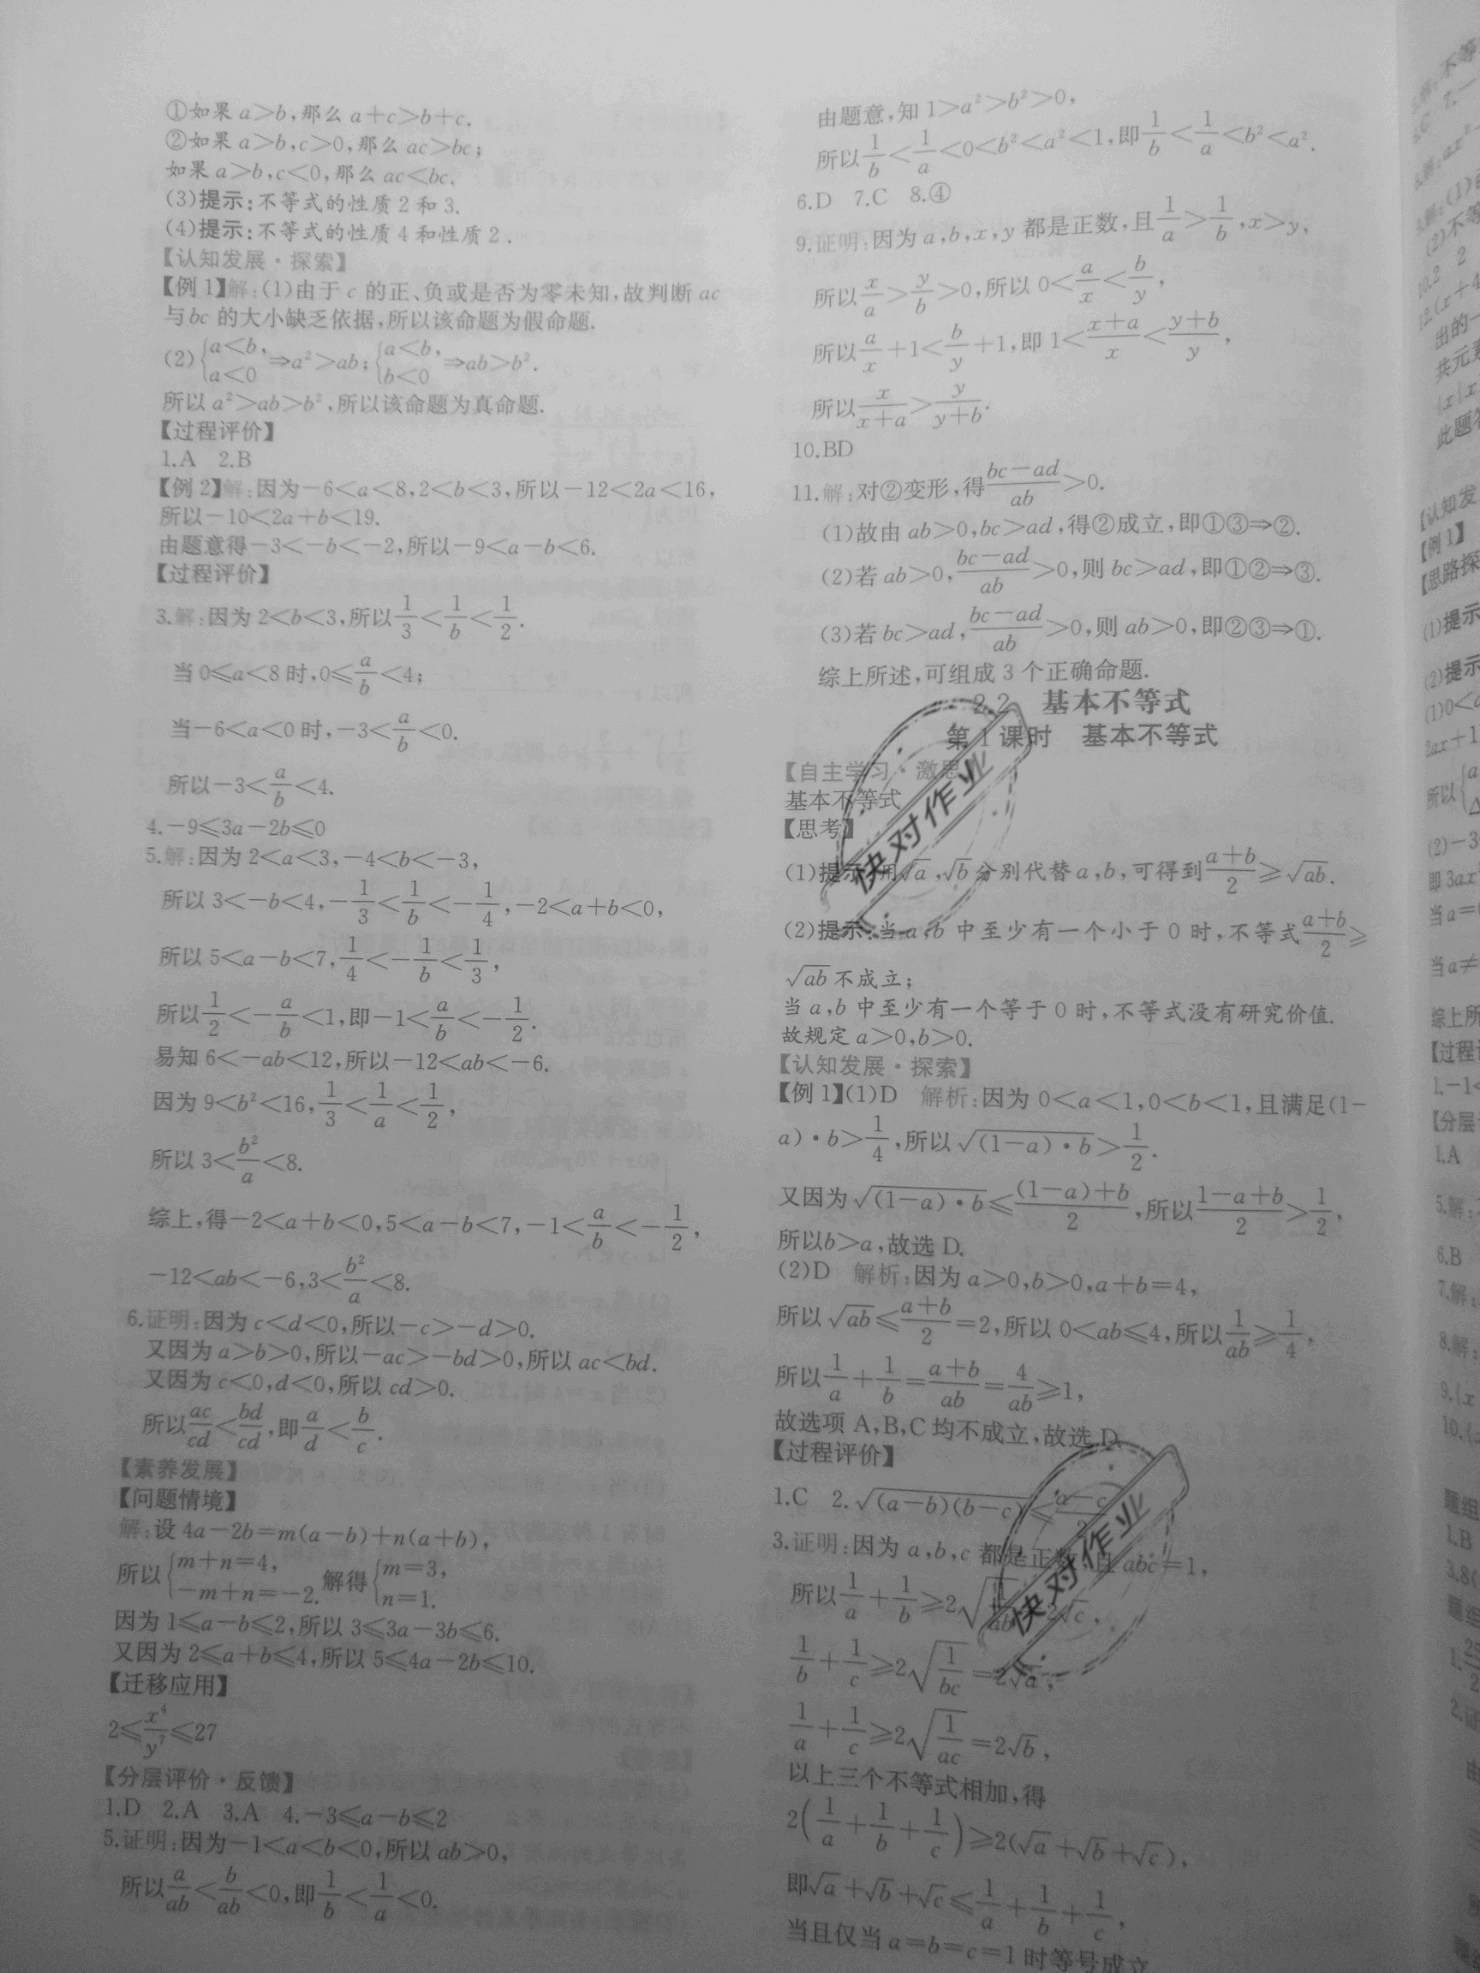 ①如果 a>b,那么 a+c>b+c.
②如果 a>b,c>0,那么 ac>bc;
如果 a>b,c<0,那么 ac<bc.
(3)提示:不等式的性质 2 和 3.
(4)提示:不等式的性质 4 和性质 2.
【认知发展·探索】
【例 1】解:(1)由于 c 的正、负或是否为零未知,故判断 ac
与 bc 的大小缺乏依据,所以该命题为假命题.
(2){a<b, a<0 ⇒a²>ab; {a<b, b<0 ⇒ab>b².
所以 a²>ab>b²,所以该命题为真命题.
【过程评价】
1.A 2.B
【例 2】解:因为-6<a<8,2<b<3,所以-12<2a<16,
所以-10<2a+b<19.
由题意得-3<-b<-2,所以-9<a-b<6.
【过程评价】
3.解:因为 2<b<3,所以 1/3<1/b<1/2.
当 0≤a<8 时,0≤a/b<4;
当-6<a<0 时,-3<a/b<0.
所以-3<a/b<4.
4.-9≤3a-2b≤0
5.解:因为 2<a<3,-4<b<-3,
所以 3<-b<4,-1/3<1/b<-1/4,-2<a+b<0,
所以 5<a-b<7,1/4<-1/b<1/3,
所以 1/2<-a/b<1,即-1<a/b<-1/2.
易知 6<-ab<12,所以-12<ab<-6.
因为 9<b²<16,1/3<1/a<1/2,
所以 3<b²/a<8.
综上,得-2<a+b<0,5<a-b<7,-1<a/b<-1/2,
-12<ab<-6,3<b²/a<8.
6.证明:因为 c<d<0,所以-c>-d>0.
又因为 a>b>0,所以-ac>-bd>0,所以 ac<bd.
又因为 c<0,d<0,所以 cd>0.
所以 ac/cd<bd/cd,即 a/d<b/c.
【素养发展】
【问题情境】
解:设 4a-2b=m(a-b)+n(a+b),
所以{m+n=4, -m+n=-2. 解得{m=3, n=1.
因为 1≤a-b≤2,所以 3≤3a-3b≤6.
又因为 2≤a+b≤4,所以 5≤4a-2b≤10.
【迁移应用】
2≤x⁴/y⁷≤27
【分层评价·反馈】
1.D 2.A 3.A 4.-3≤a-b≤2
5.证明:因为-1<a<b<0,所以 ab>0,
所以 a/ab<b/ab<0,即 1/b<1/a<0.
由题意,知 1>a²>b²>0,
所以 1/b<1/a<0<b²<a²<1,即 1/b<1/a<b²<a².
6.D 7.C 8.④
9.证明:因为 a,b,x,y 都是正数,且 1/a>1/b,x>y,
所以 x/a>y/b>0,所以 0<a/x<b/y,
所以 a/x+1<b/y+1,即 1<(x+a)/x<(y+b)/y,
所以 x/(x+a)>y/(y+b).
10.BD
11.解:对②变形,得 (bc-ad)/ab>0.
(1)故由 ab>0,bc>ad,得②成立,即①③⇒②.
(2)若 ab>0,(bc-ad)/ab>0,则 bc>ad,即①②⇒③.
(3)若 bc>ad,(bc-ad)/ab>0,则 ab>0,即②③⇒①.
综上所述,可组成 3 个正确命题.
2.2 基本不等式
第 1 课时 基本不等式
【自主学习·激思】
基本不等式
【思考】
(1)提示:用√a,√b分别代替 a,b,可得到 (a+b)/2≥√ab.
(2)提示:当 a,b 中至少有一个小于 0 时,不等式 (a+b)/2≥
√ab 不成立;
当 a,b 中至少有一个等于 0 时,不等式没有研究价值.
故规定 a>0,b>0.
【认知发展·探索】
【例 1】(1)D 解析:因为 0<a<1,0<b<1,且满足(1-
a)·b>1/4,所以 √((1-a)·b)>1/2.
又因为 √((1-a)·b)≤((1-a)+b)/2,所以 (1-a+b)/2>1/2,
所以b>a,故选 D.
(2)D 解析:因为 a>0,b>0,a+b=4,
所以 √ab≤(a+b)/2=2,所以 0<ab≤4,所以 1/ab≥1/4,
所以 1/a+1/b=(a+b)/ab=4/ab≥1,
故选项 A,B,C 均不成立,故选 D.
【过程评价】
1.C 2.√((a-b)(b-c))≤(a-c)/2
3.证明:因为 a,b,c 都是正数,且 abc=1,
所以 1/a+1/b≥2√(1/ab)=2√c,
1/b+1/c≥2√(1/bc)=2√a,
1/a+1/c≥2√(1/ac)=2√b,
以上三个不等式相加,得
2(1/a+1/b+1/c)≥2(√a+√b+√c),
即√a+√b+√c≤1/a+1/b+1/c,
当且仅当 a=b=c=1 时等号成立
快对作业
快对作业
【认知发
【例 1】
【思路探
(1)提示
(2)提示
(1)0<a
2ax+1
所以
(2)-3
即 3ax
当 a=
当 a≠
综上所
【过程
1.-1<
【分层
1.A
5.解:
6.B
7.解:
8.解:
9.{x